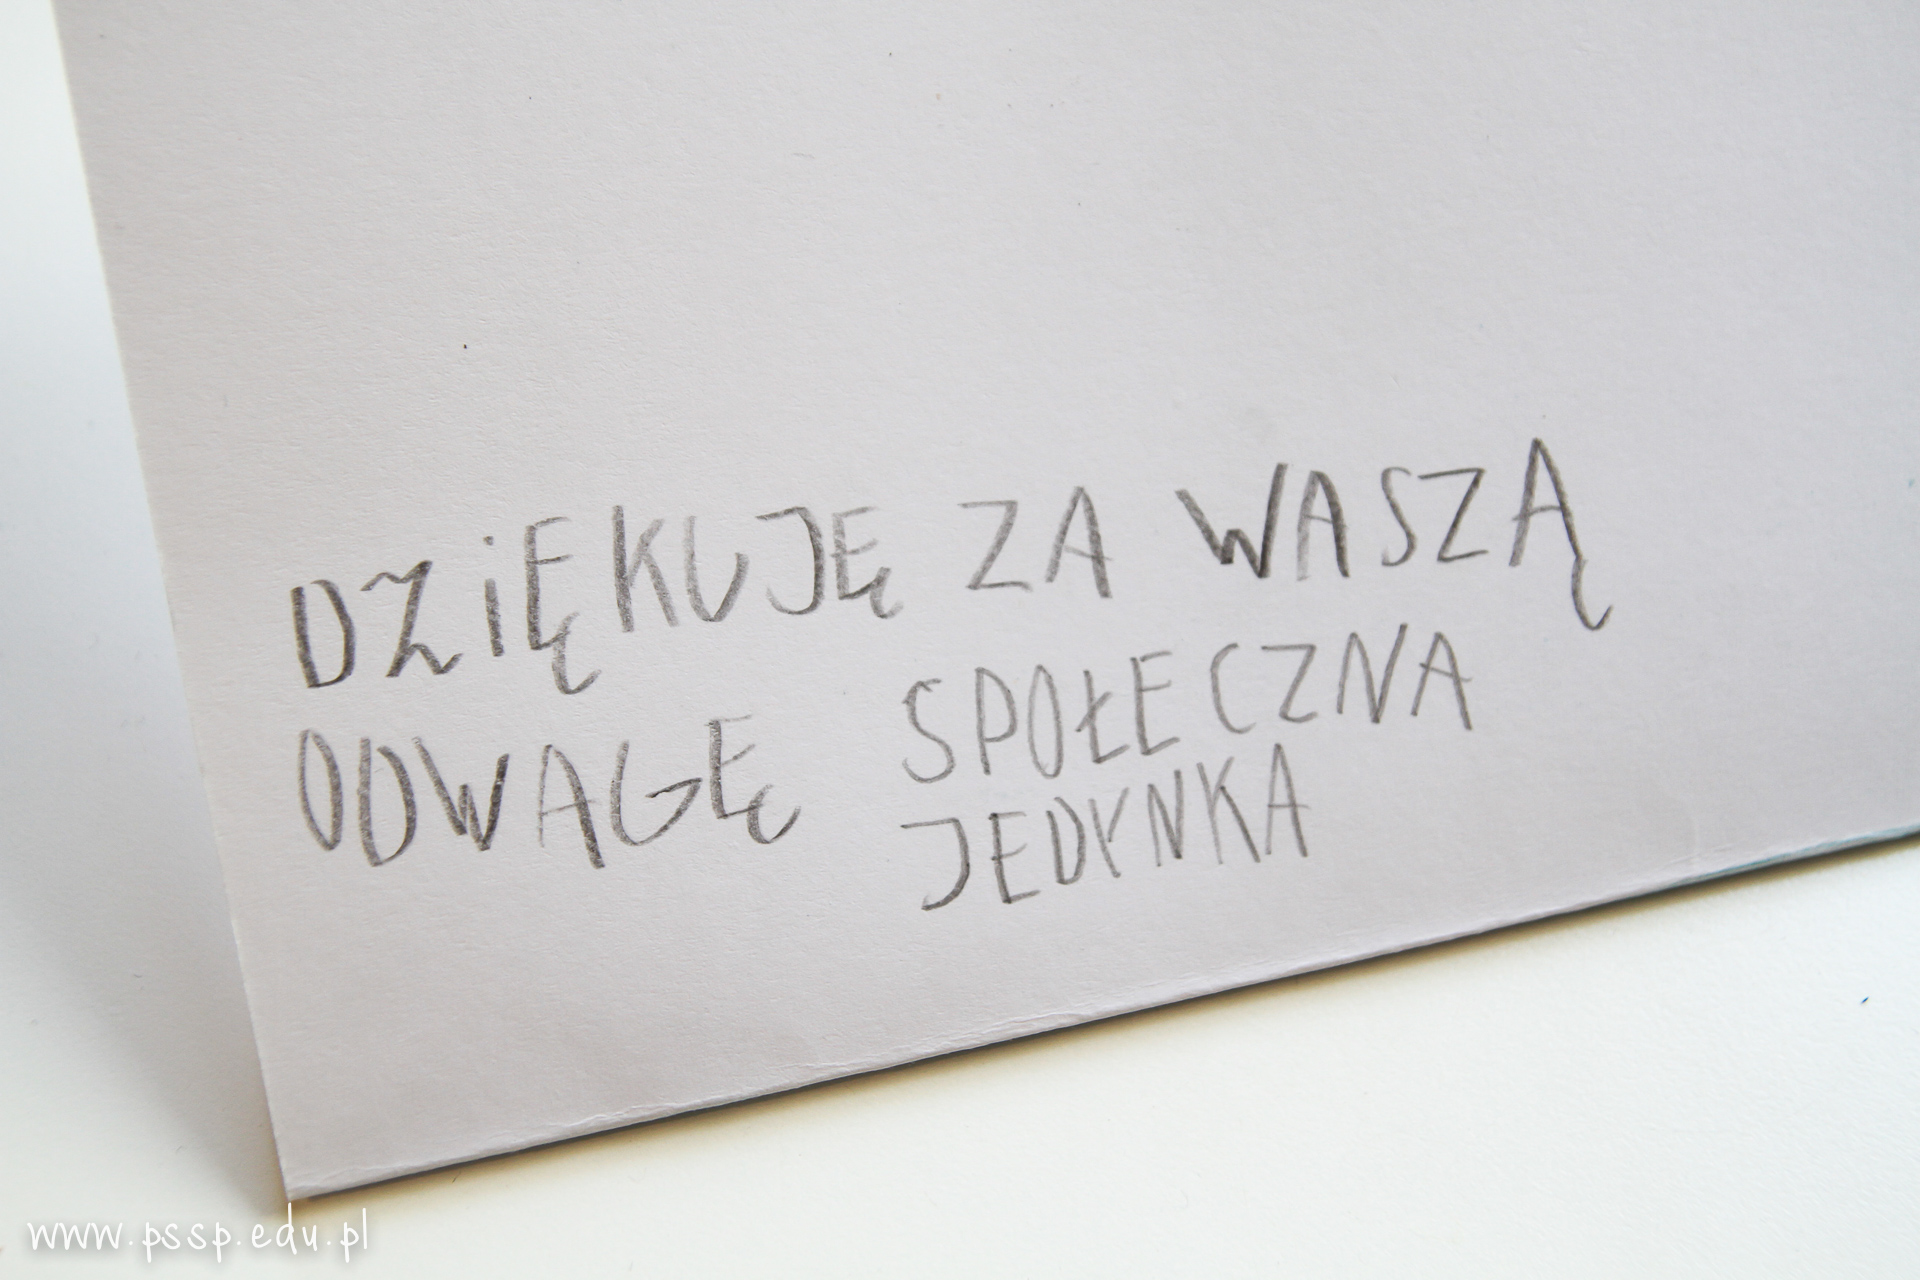 DZiĘKUJĘ ZA WASZĄ
ODWAGĘ SPOŁECZNA
JEDYNKA
www.pssp.edu.pl